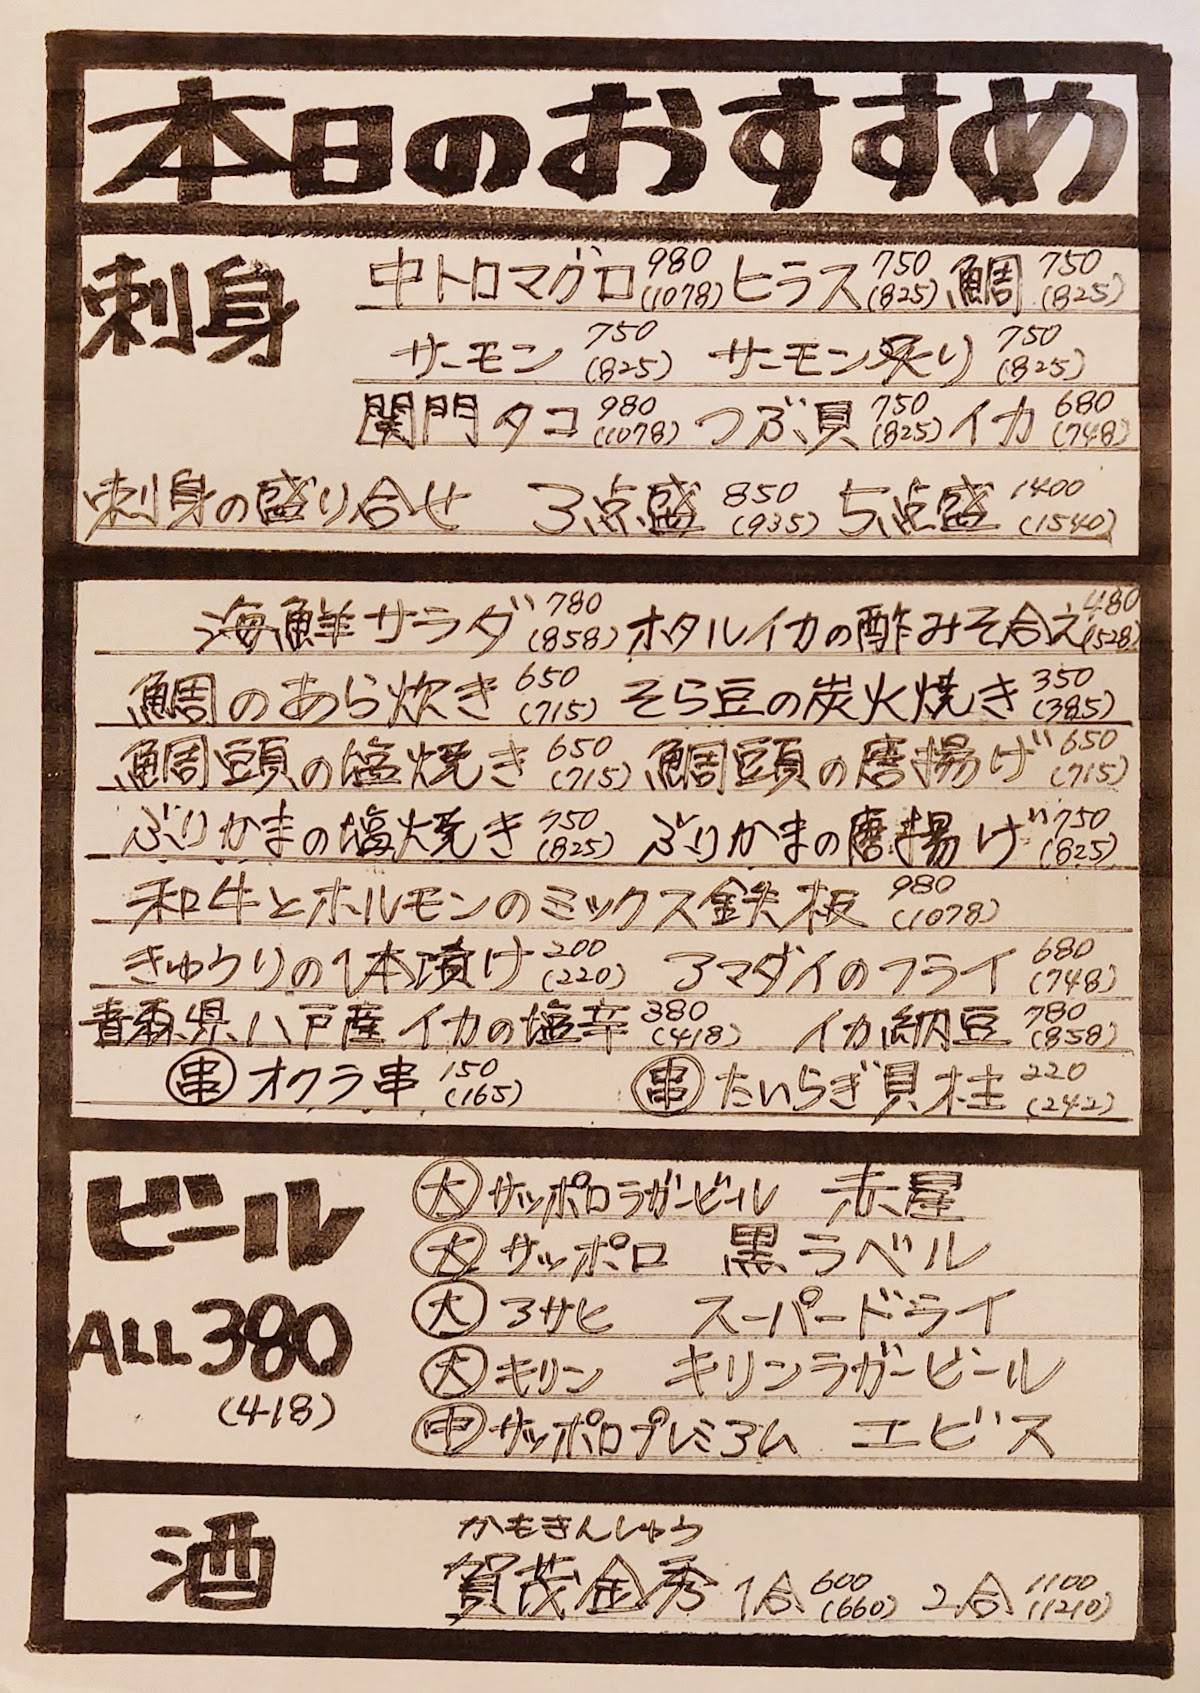 本日のおすすめ
刺身
中トロマグロ 980 (1078) ヒラス 750 (825) 鯛 750 (825)
サーモン 750 (825) サーモン炙り 750 (825)
関門タコ 980 (1078) つぶ貝 750 (825) イカ 680 (748)
刺身の盛り合せ 3点盛 850 (935) 5点盛 1400 (1540)
海鮮サラダ 780 (858) ホタルイカの酢みそ合え 480 (528)
鯛のあら炊き 650 (715) そら豆の炭火焼き 350 (385)
鯛頭の塩焼き 650 (715) 鯛頭の唐揚げ 650 (715)
ぶりかまの塩焼き 750 (825) ぶりかまの唐揚げ 750 (825)
和牛とホルモンのミックス鉄板 980 (1078)
きゅうりの1本漬け 200 (220) アマダイのフライ 680 (748)
青森県八戸産イカの塩辛 380 (418) イカ納豆 780 (858)
串 オクラ串 150 (165) 串 たいらぎ貝柱 220 (242)
ビール
ALL 380
(418)
大 サッポロラガービール 赤星
大 サッポロ 黒ラベル
大 アサヒ スーパードライ
大 キリン キリンラガービール
中 サッポロプレミアム エビス
酒
かもきんしゅう
賀茂金秀 1合 600 (660) 2合 1100 (1210)